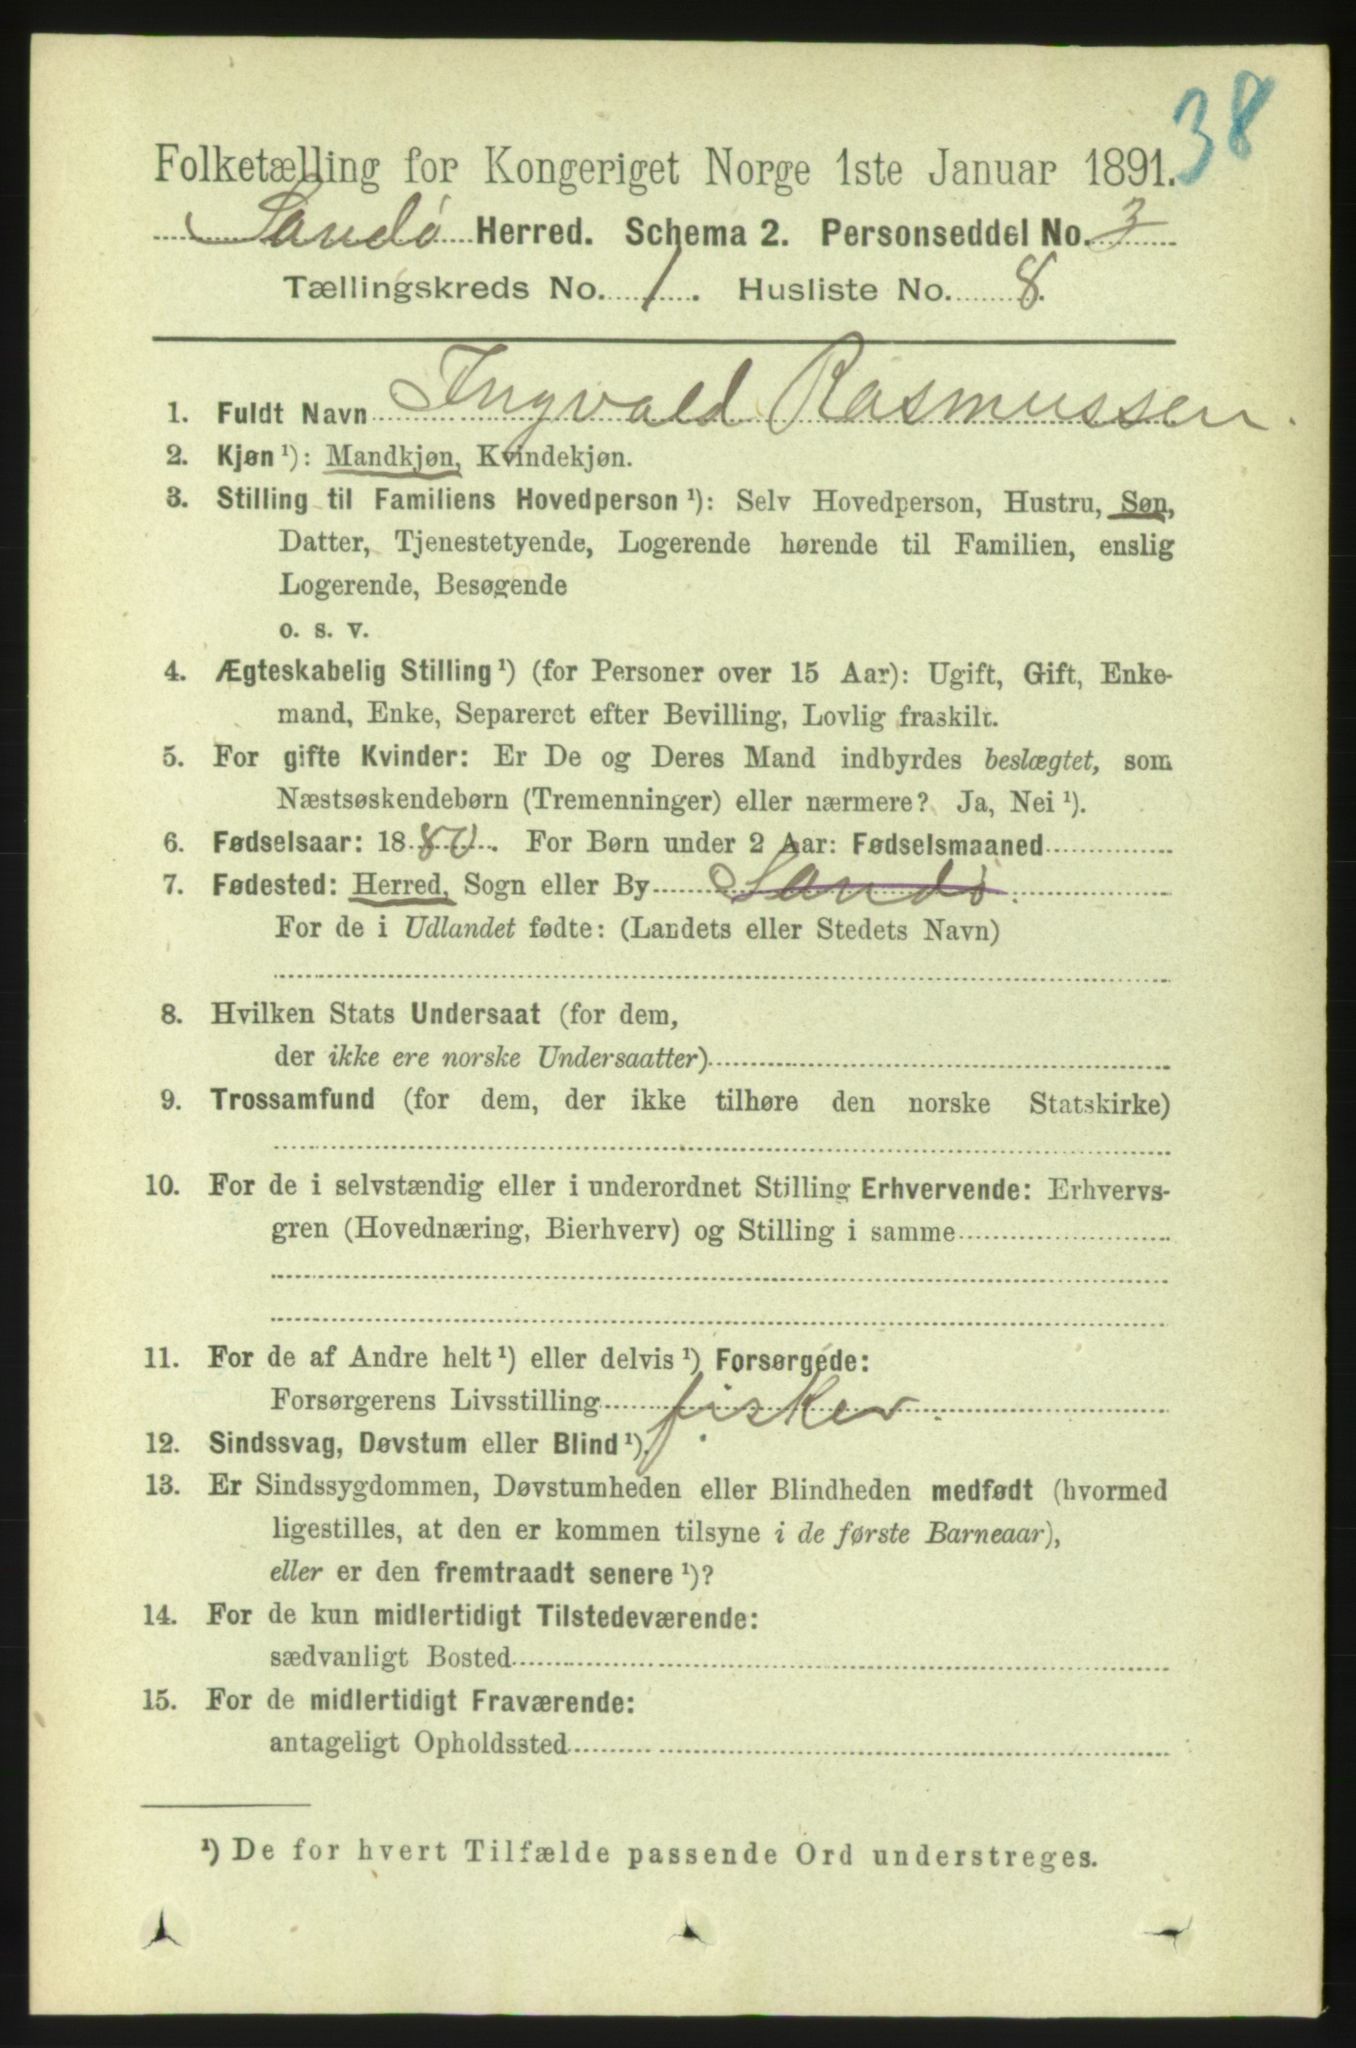 38
Folketælling for Kongeriget Norge 1ste Januar 1891.
Sandø Herred. Schema 2. Personseddel No. 3
Tællingskreds No. 1. Husliste No. 8.
1. Fuldt Navn Ingvald Rasmussen.
2. Kjøn ¹): Mandkjøn, Kvindekjøn.
3. Stilling til Familiens Hovedperson ¹): Selv Hovedperson, Hustru, Søn,
Datter, Tjenestetyende, Logerende hørende til Familien, enslig
Logerende, Besøgende
o. s. v.
4. Ægteskabelig Stilling ¹) (for Personer over 15 Aar): Ugift, Gift, Enke-
mand, Enke, Separeret efter Bevilling, Lovlig fraskilt.
5. For gifte Kvinder: Er De og Deres Mand indbyrdes beslægtet, som
Næstsøskendebørn (Tremenninger) eller nærmere? Ja, Nei ¹).
6. Fødselsaar: 1880. For Børn under 2 Aar: Fødselsmaaned
7. Fødested: Herred, Sogn eller By Sandø.
For de i Udlandet fødte: (Landets eller Stedets Navn)
8. Hvilken Stats Undersaat (for dem,
der ikke ere norske Undersaatter)
9. Trossamfund (for dem, der ikke tilhøre den norske Statskirke)
10. For de i selvstændig eller i underordnet Stilling Erhvervende: Erhvervs-
gren (Hovednæring, Bierhverv) og Stilling i samme
11. For de af Andre helt ¹) eller delvis ¹) Forsørgede:
Forsørgerens Livsstilling fisker.
12. Sindssvag, Døvstum eller Blind ¹).
13. Er Sindssygdommen, Døvstumheden eller Blindheden medfødt (hvormed
ligestilles, at den er kommen tilsyne i de første Barneaar),
eller er den fremtraadt senere ¹)?
14. For de kun midlertidigt Tilstedeværende:
sædvanligt Bosted
15. For de midlertidigt Fraværende:
antageligt Opholdssted
¹) De for hvert Tilfælde passende Ord understreges.